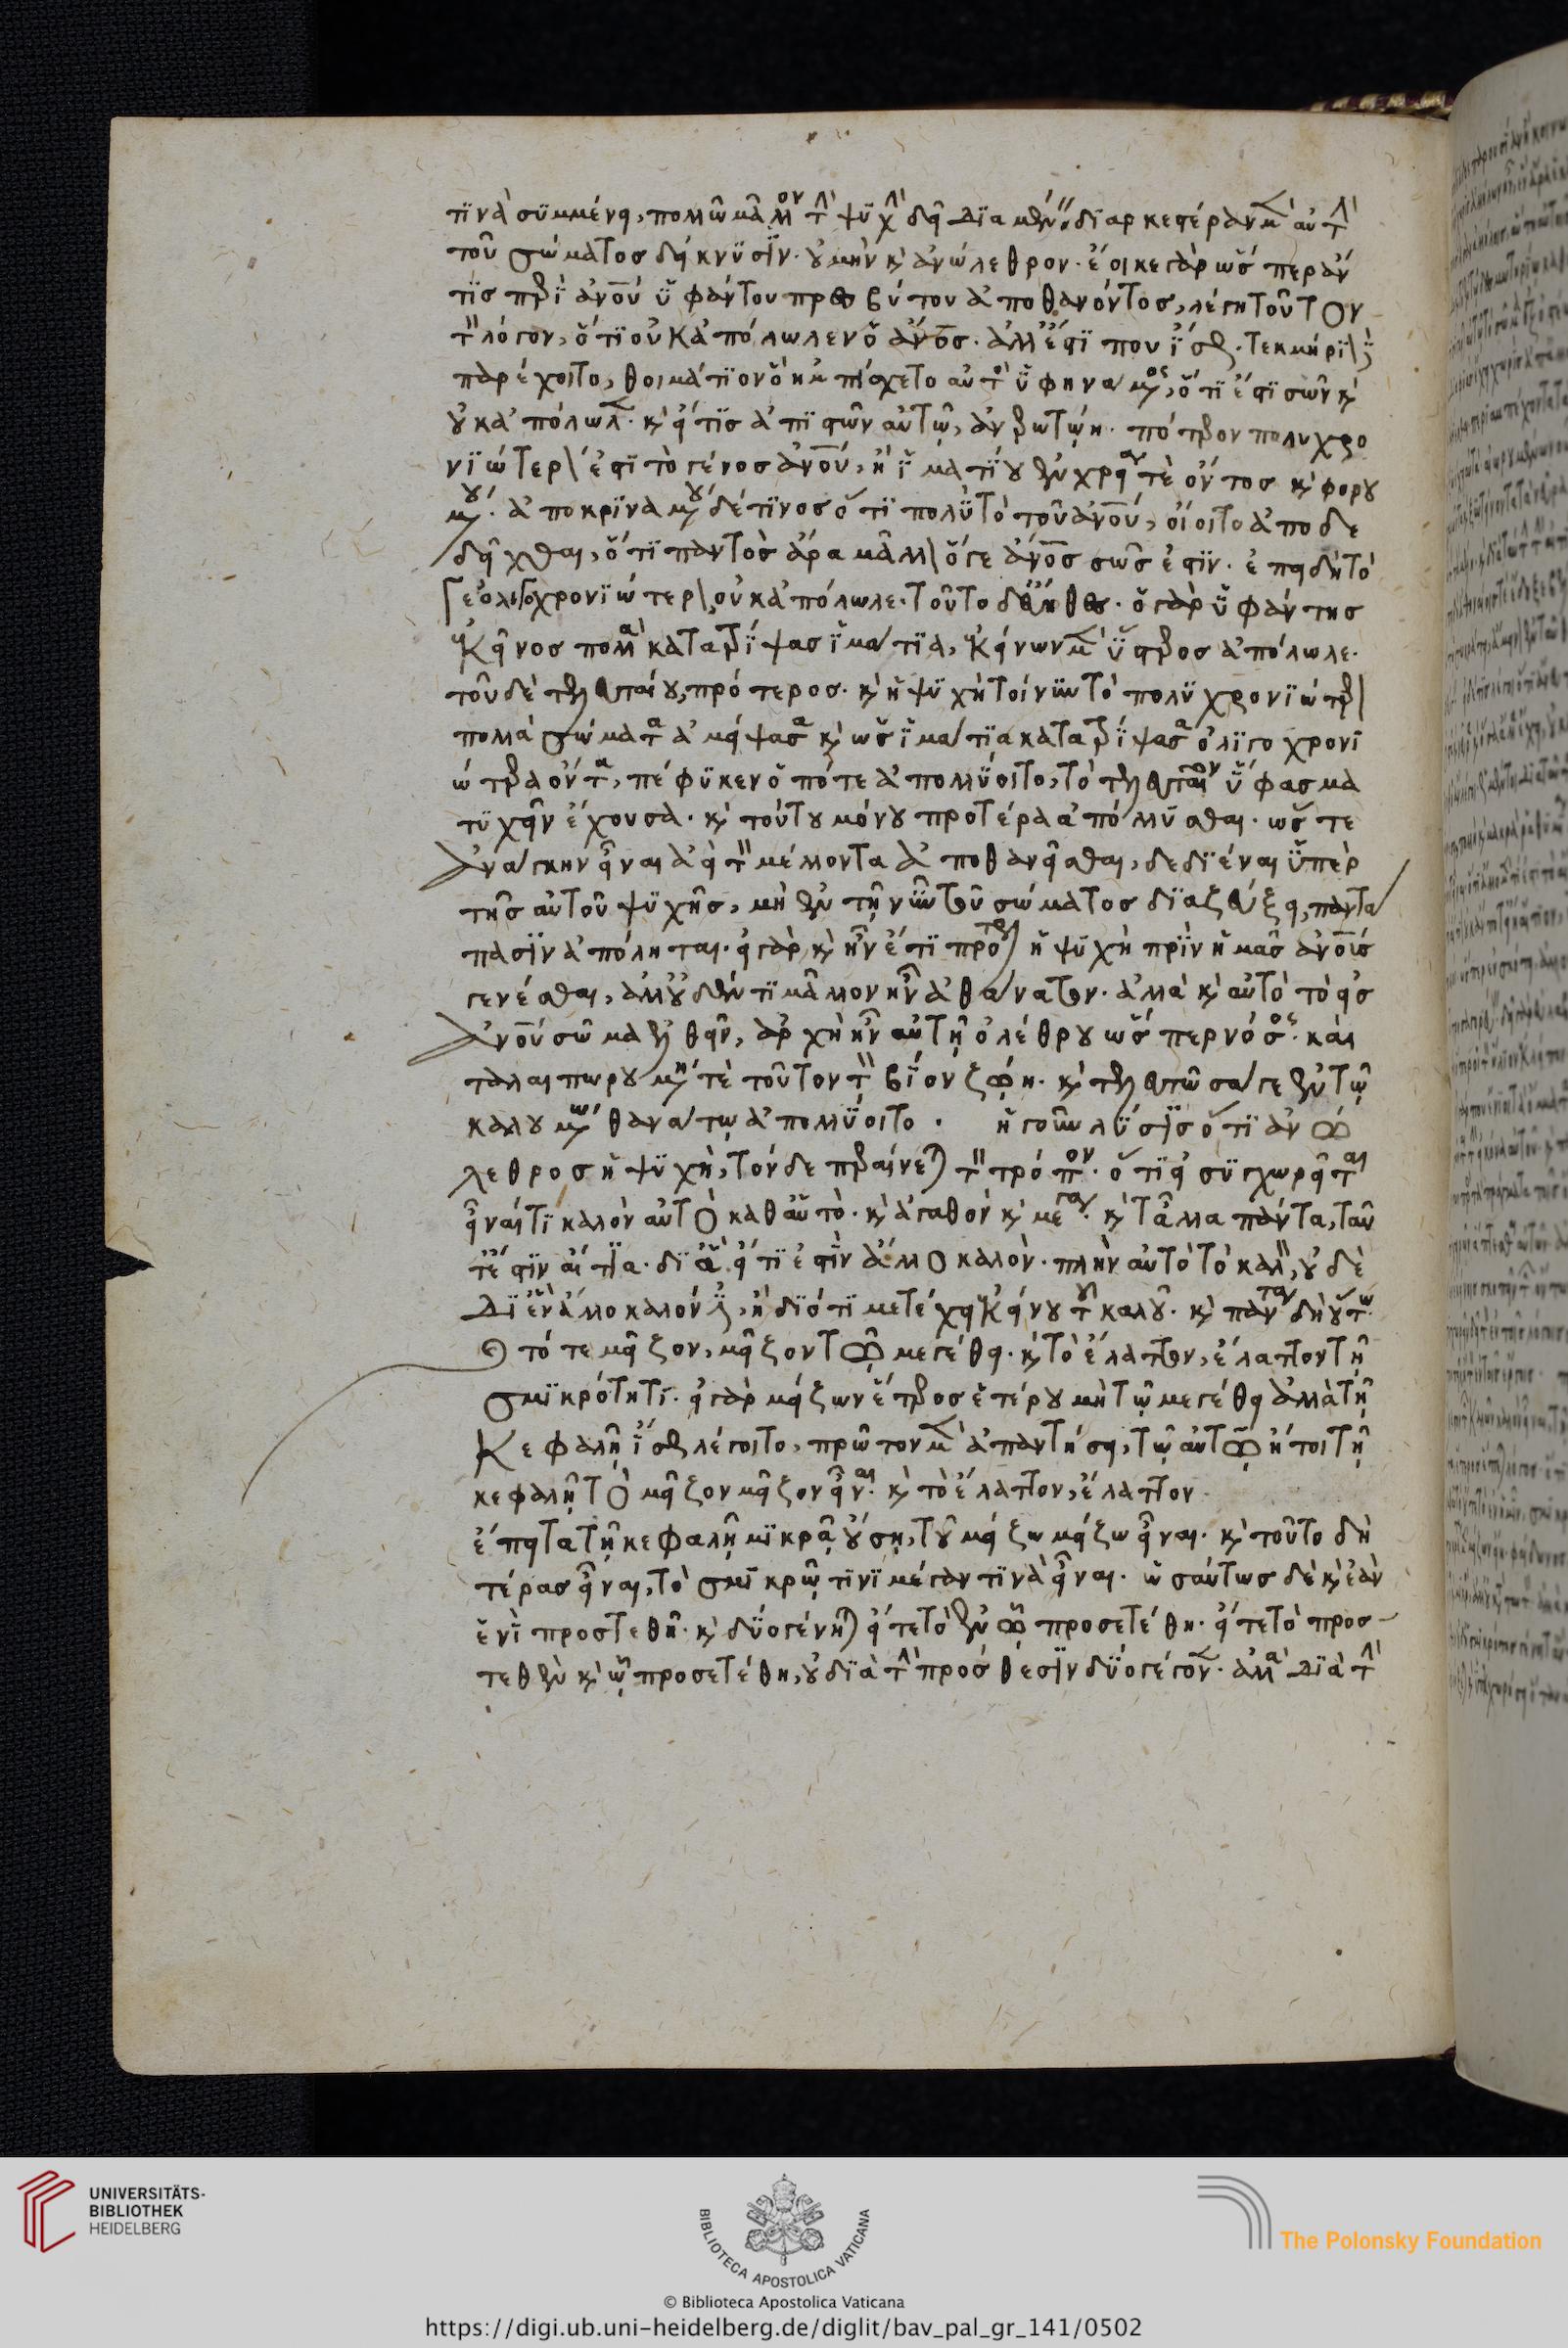 τινὰ συμμένει, πολλῶ μᾶλλον τὴν ψυχὴν δεῖ. Δϊὰ μὲν οὖν διαρκεστέραν μὲν αὐτὴν
τοῦ σώματος δείκνυσϊν. οὐ μὴν καὶ ἀνώλεθρον. ἔοικε γὰρ ὥσπερ ἄν
τϊς περὶ ἀνου ὑφάντου πρεσβύτου ἀποθανόντος, λέγη τοῦτον
τὸν λόγον, ὅτι οὐκ ἀπόλωλεν ὁ ἀνος. ἀλλ' ἔστι που ἴσως. τεκμήριον δὲ
παρέχοιτο, θοιμάτιον ὃ ἠμπίσχετο αὐτὸς ὑφηνάμενος, ὅτι ἐστὶ σῶν καὶ
οὐκ ἀπόλωλεν. καὶ εἴ τις ἀπιστῶν αὐτῶ, ἀνερωτώη. πότερον πολυχρο
νιώτερον ἐστὶ τὸ γένος ἀνου, ἢ ἱματίου ἐν χρεία τὲ ὄντος καὶ φορου
μένου. ἀποκριναμένου δέ τινος ὅτι πολὺ τὸ τοῦ ἀνου, οἴοιτο ἀποδε
δεῖχθαι, ὅτι παντὸς ἄρα μᾶλλον ὅγε ἀνος σῶς ἐστιν. ἐπειδὴ τό
γε ὀλιγοχρονιώτερον οὐκ ἀπόλωλε. τοῦτο δ' εὔηθες. ὁ γὰρ ὑφάντης
ἐκεῖνος πολλὰ κατατρίψας ἱμάτια, ἐκείνων μὲν ὕστερος ἀπόλωλε.
τοῦ δὲ τελευταίου, πρότερος. καὶ ἡ ψυχὴ τοίνυν τὸ πολυχρονιώτερον
πολλὰ σώματα ἀμείψασα καὶ ὡς ἱμάτια κατατρίψασα ὀλιγοχρονι
ώτερα ὄντα, πέφυκεν ὁπότε ἀπολλύοιτο, τὸ τελευταῖον ὕφασμα
τυχεῖν ἔχουσα. καὶ τούτου μόνου προτέρα ἀπόλλυσθαι. ὥστε
ἀνάγκην εἶναι ἀεὶ τὸν μέλλοντα ἀποθανεῖσθαι, δεδιέναι ὑπὲρ
τῆς αὐτοῦ ψυχῆς, μὴ ἐν τῆ νῦν τοῦ σώματος διαζεύξει, παντά
πασϊν ἀπόληται. εἰ γὰρ καὶ ἦν ἔτι πρότερον ἡ ψυχὴ πρὶν ἡμᾶς ἀνοις
γενέσθαι, ἀλλ' οὐδέν τι μᾶλλον ἦν ἀθάνατον. ἀλλὰ καὶ αὐτὸ τὸ εἰς
ἀνου σῶμα ἐλθεῖν, ἀρχὴ ἦν αὐτῆ ὀλέθρου ὥσπερ νόσος. καὶ
ταλαιπωρουμένη τὲ τοῦτον τὸν βίον ζώη. καὶ τελευτῶσά γε ἐν τῶ
καλουμένω θανάτω ἀπολλύοιτο. ἡ γοῦν λύσϊς ὅτι ἀνώ
λεθρος ἡ ψυχὴ, τόνδε περαίνεται τὸν τρόπον. ὅτι εἰ συγχωρεῖται
εἶναί τι καλὸν αὐτὸ καθ' αὑτὸ. καὶ ἀγαθὸν καὶ μέγα. καὶ τἄλλα πάντα, ταῦ
τ' ἔστϊν αἴτϊα. δι' ἃ εἴ τι ἐστὶν ἄλλο καλὸν. πλὴν αὐτὸ τὸ καλὸν, οὐδὲ
δι' ἓν ἄλλο καλόν ἐστιν, ἢ διότι μετέχει ἐκείνου τοῦ καλοῦ. καὶ πάντα δὴ οὕτω.
τό τε μεῖζον, μεῖζον τῶ μεγέθει. καὶ τὸ ἔλαττον, ἔλαττον τῆ
σμικρότητι. εἰ γὰρ μείζων ἕτερος ἑτέρου μὴ τῶ μεγέθει ἀλλὰ τῆ
κεφαλῆ ἴσως λέγοιτο, πρῶτον μὲν ἀπαντήσει, τῶ αὐτῶ ἤτοι τῆ
κεφαλῆ τὸ μεῖζον μεῖζον εἶναι. καὶ τὸ ἔλαττον, ἔλαττον.
ἔπειτα τῆ κεφαλῆ μικρᾶ οὔση, τοῦ μείζω μείζω εἶναι. καὶ τοῦτο δὴ
τέρας εἶναι, τὸ σμικρῶ τινι μέγαν τινὰ εἶναι. ὡσαύτως δὲ καὶ ἐὰν
ἑνὶ προστεθῆ. καὶ δύο γένηται εἴτε τὸ ἓν ὧ προσετέθη. εἴτε τὸ προσ
τεθὲν καὶ ὧ προσετέθη, οὐ διὰ τὴν πρόσθεσϊν δύο γέγονεν. ἀλλὰ διὰ τὴν
UNIVERSITÄTS-
BIBLIOTHEK
HEIDELBERG
BIBLIOTECA APOSTOLICA VATICANA
The Polonsky Foundation
© Biblioteca Apostolica Vaticana
https://digi.ub.uni-heidelberg.de/diglit/bav_pal_gr_141/0502